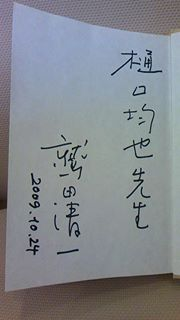 樋口均也先生
鷲田清一
2009.10.24